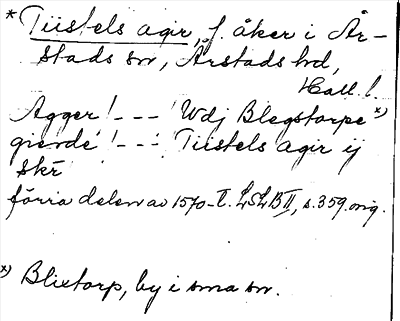 * Tiistels agir, f. åker i År-
stads sn, Årstads hd,
Hall. l.
Agger! --- Wdj Blegstorpe *)
gierde! --- Tiistels agir ij
skr
förra delen av 1570-t. LSLB II, s. 359. orig.
*) Blixtorp, by i sma sn.